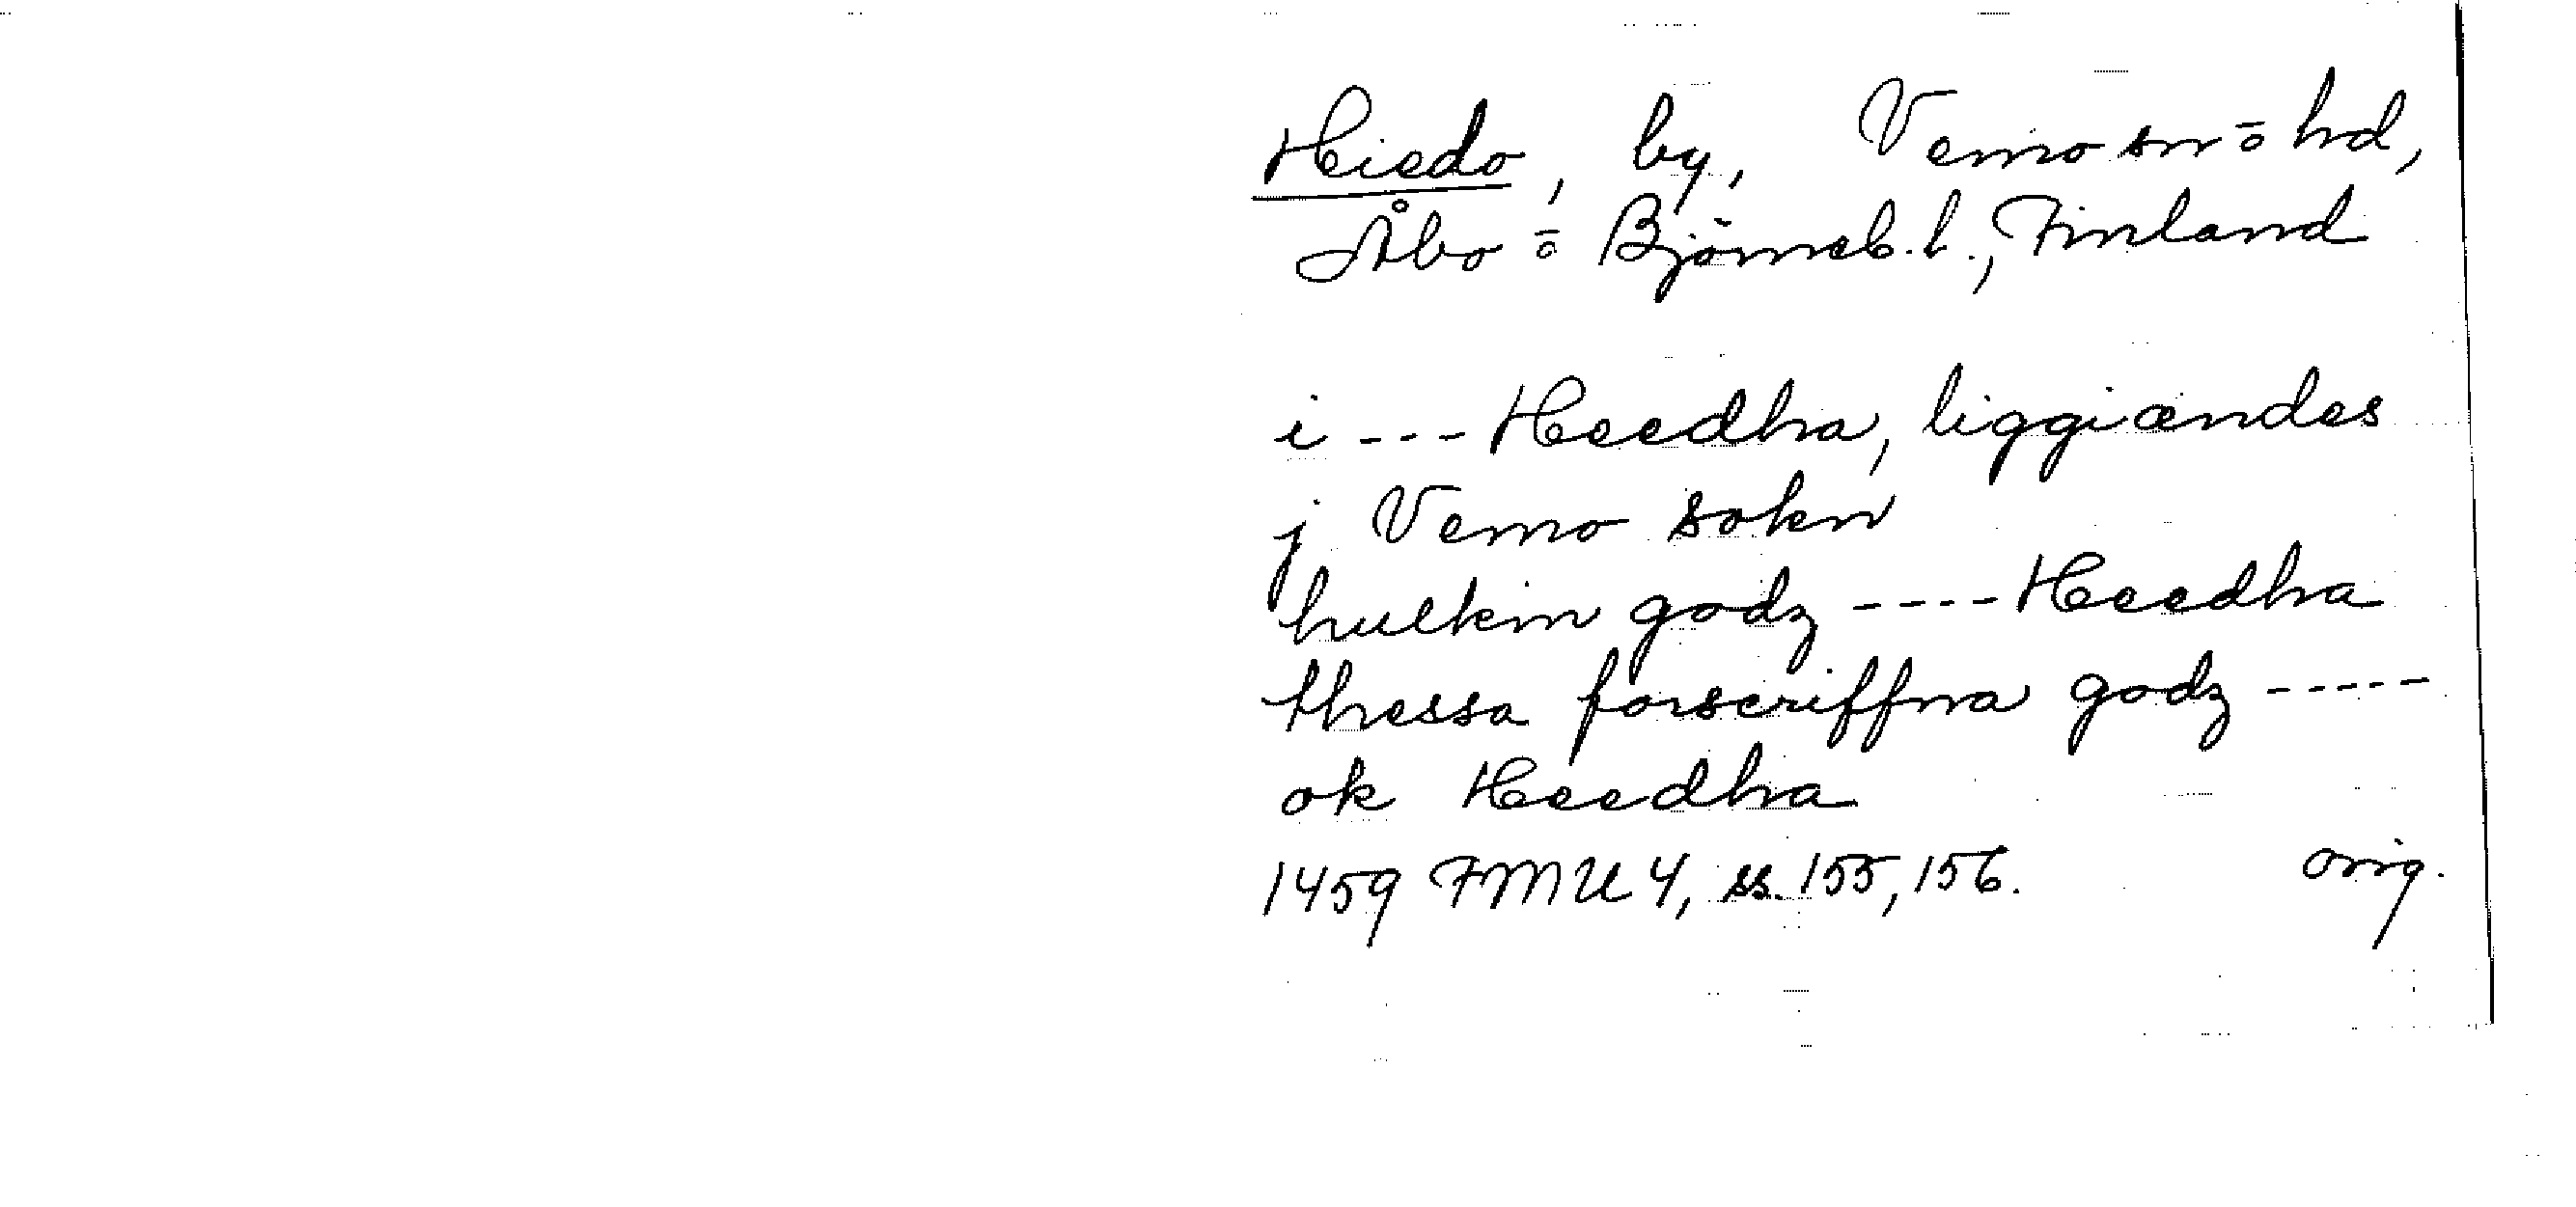 Hiedo, by, Vemo sn ō hd,
Åbo ō Björneb. l., Finland
i --- Heedha, liggiændes
j Vemo sokn
huilkin godz ---- Heedha
thessa forscriffna godz -----
ok Heedha
1459 FMU 4, ss. 155, 156. orig.